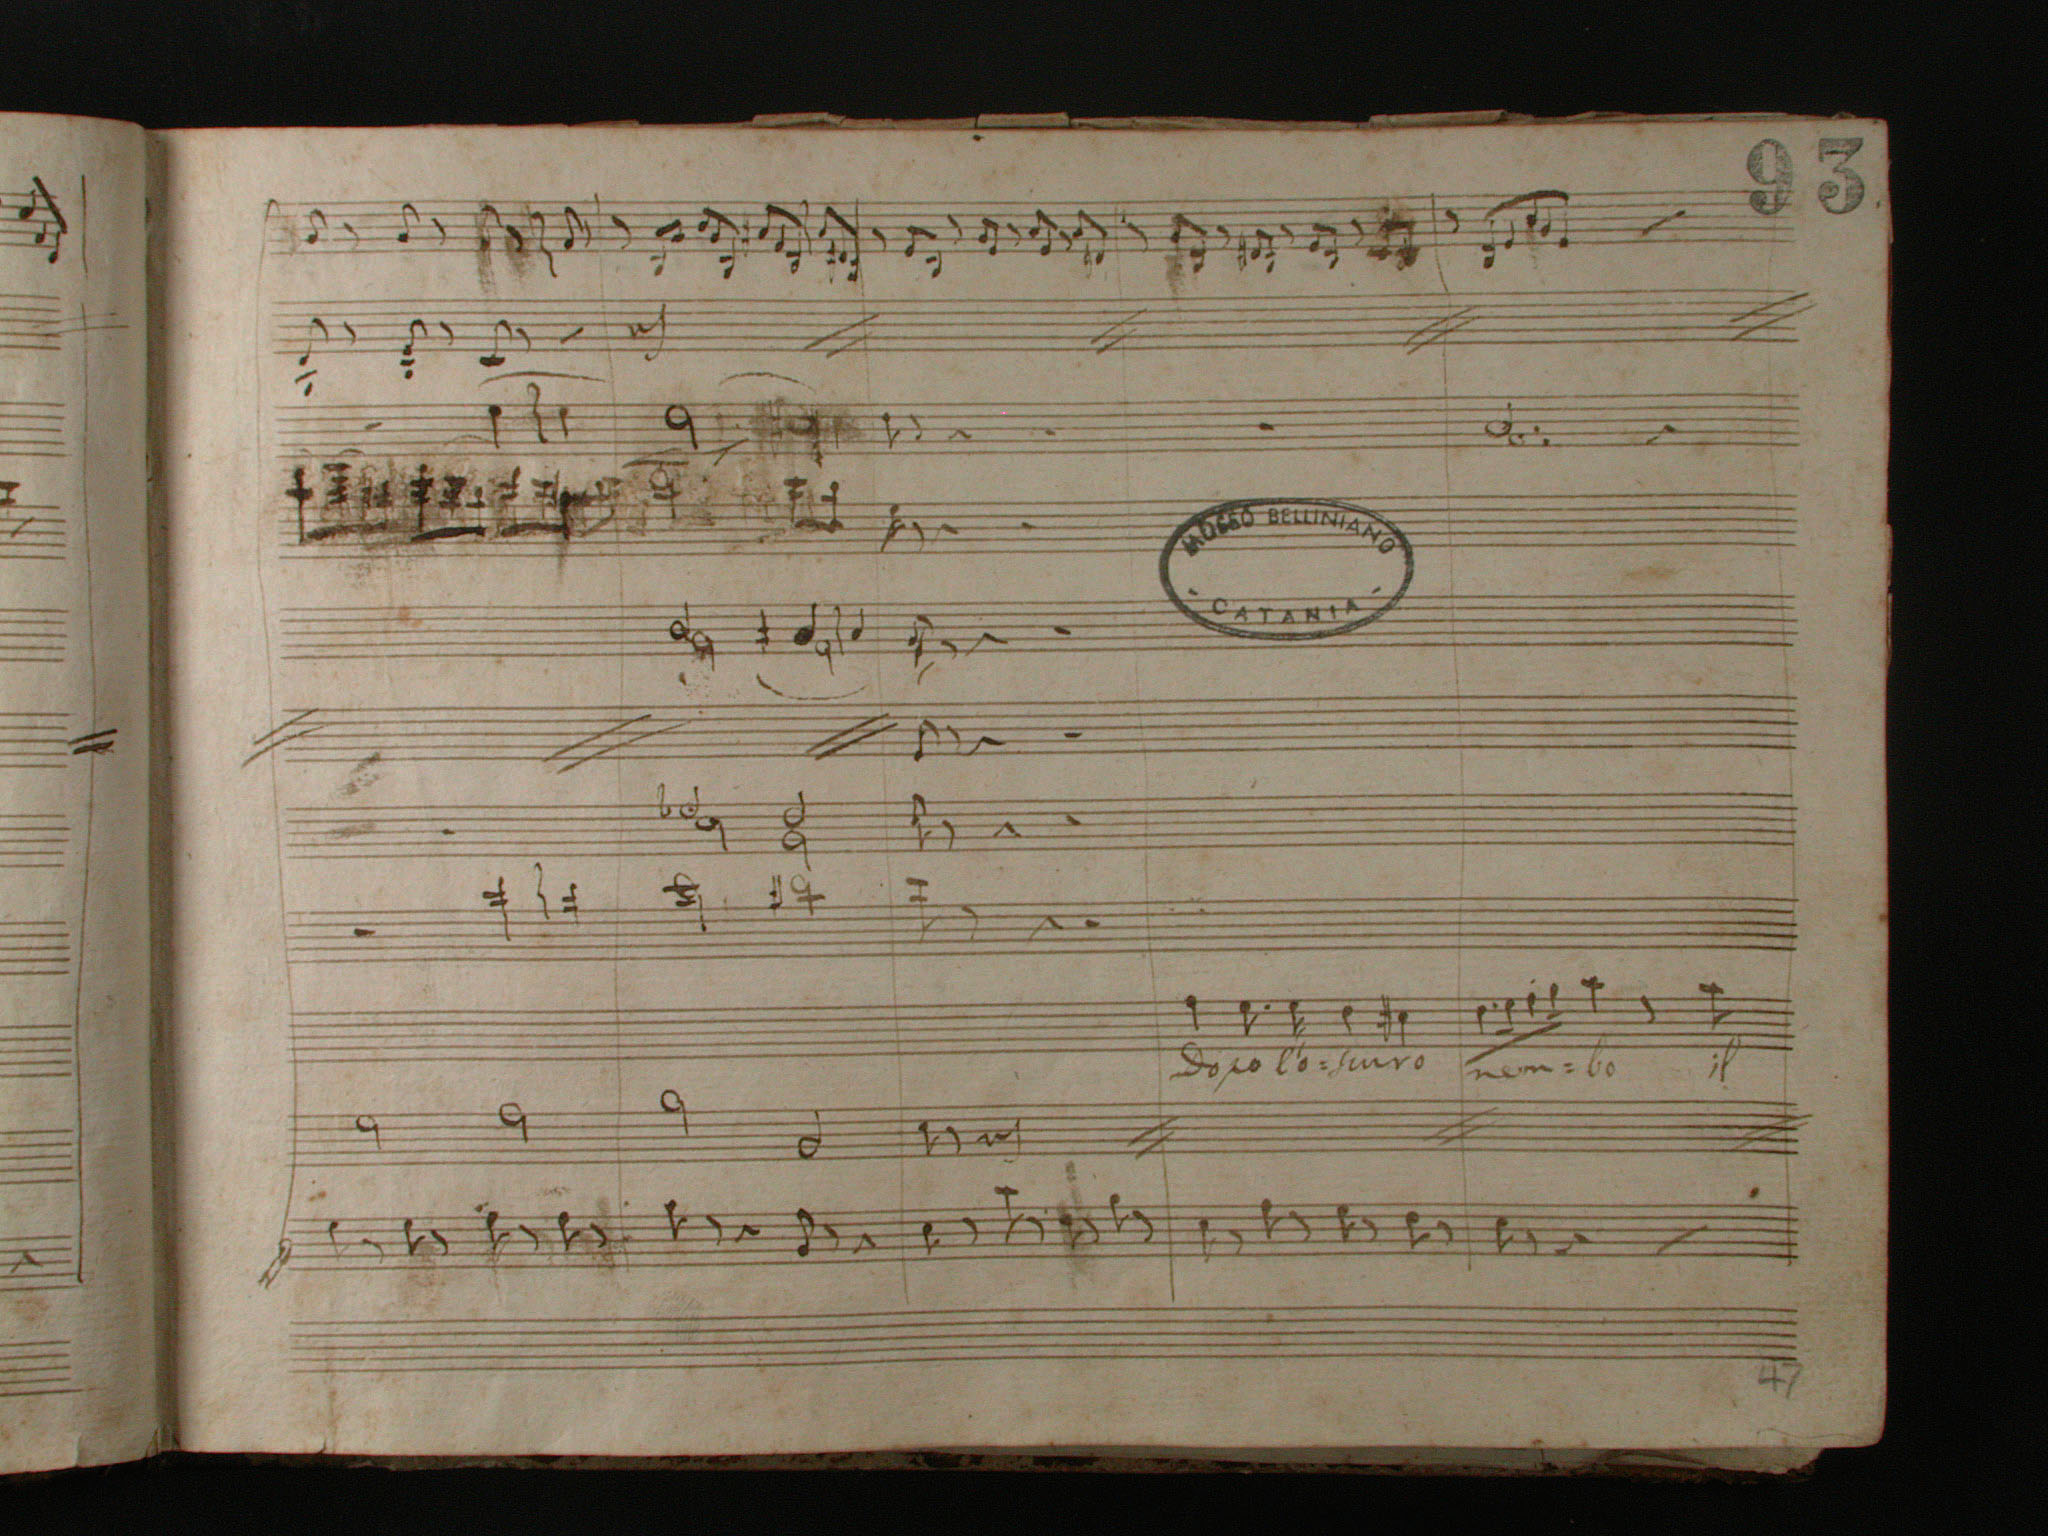 93
MUSEO BELLINIANO
- CATANIA -
Dopo l'o=scuro nem=bo il
47